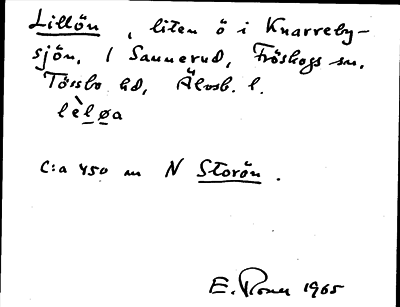 Lillön, liten ö i Knarreby-
sjön. / Sannerud, Fröskogs sn.
Tössbo hd, Älvsb. l.
lèløa
C:a 450 m N Storön.
E. 1965